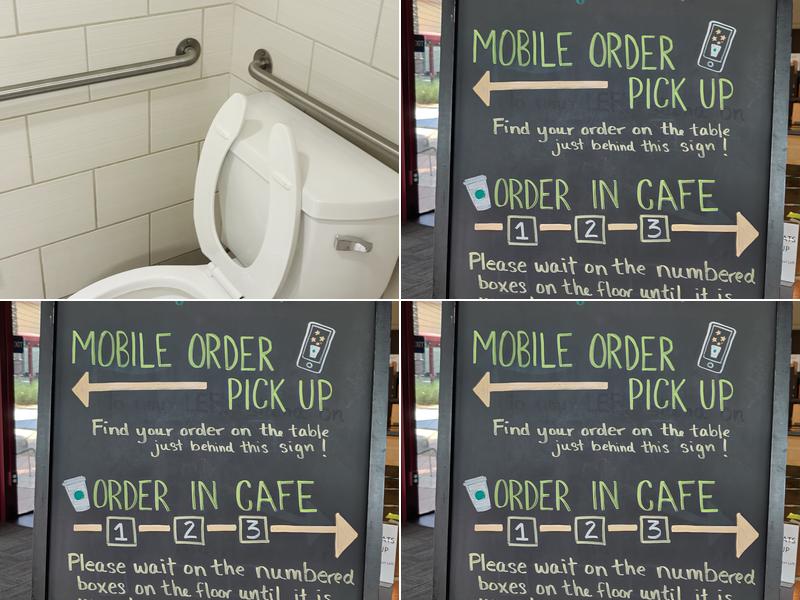 MOBILE ORDER
PICK UP
Find your order on the table
just behind this sign!
ORDER IN CAFE
1 2 3
Please wait on the numbered
boxes on the floor until it is
MOBILE ORDER
PICK UP
Find your order on the table
just behind this sign!
ORDER IN CAFE
1 2 3
Please wait on the numbered
boxes on the floor until it is
MOBILE ORDER
PICK UP
Find your order on the table
just behind this sign!
ORDER IN CAFE
1 2 3
Please wait on the numbered
boxes on the floor until it is